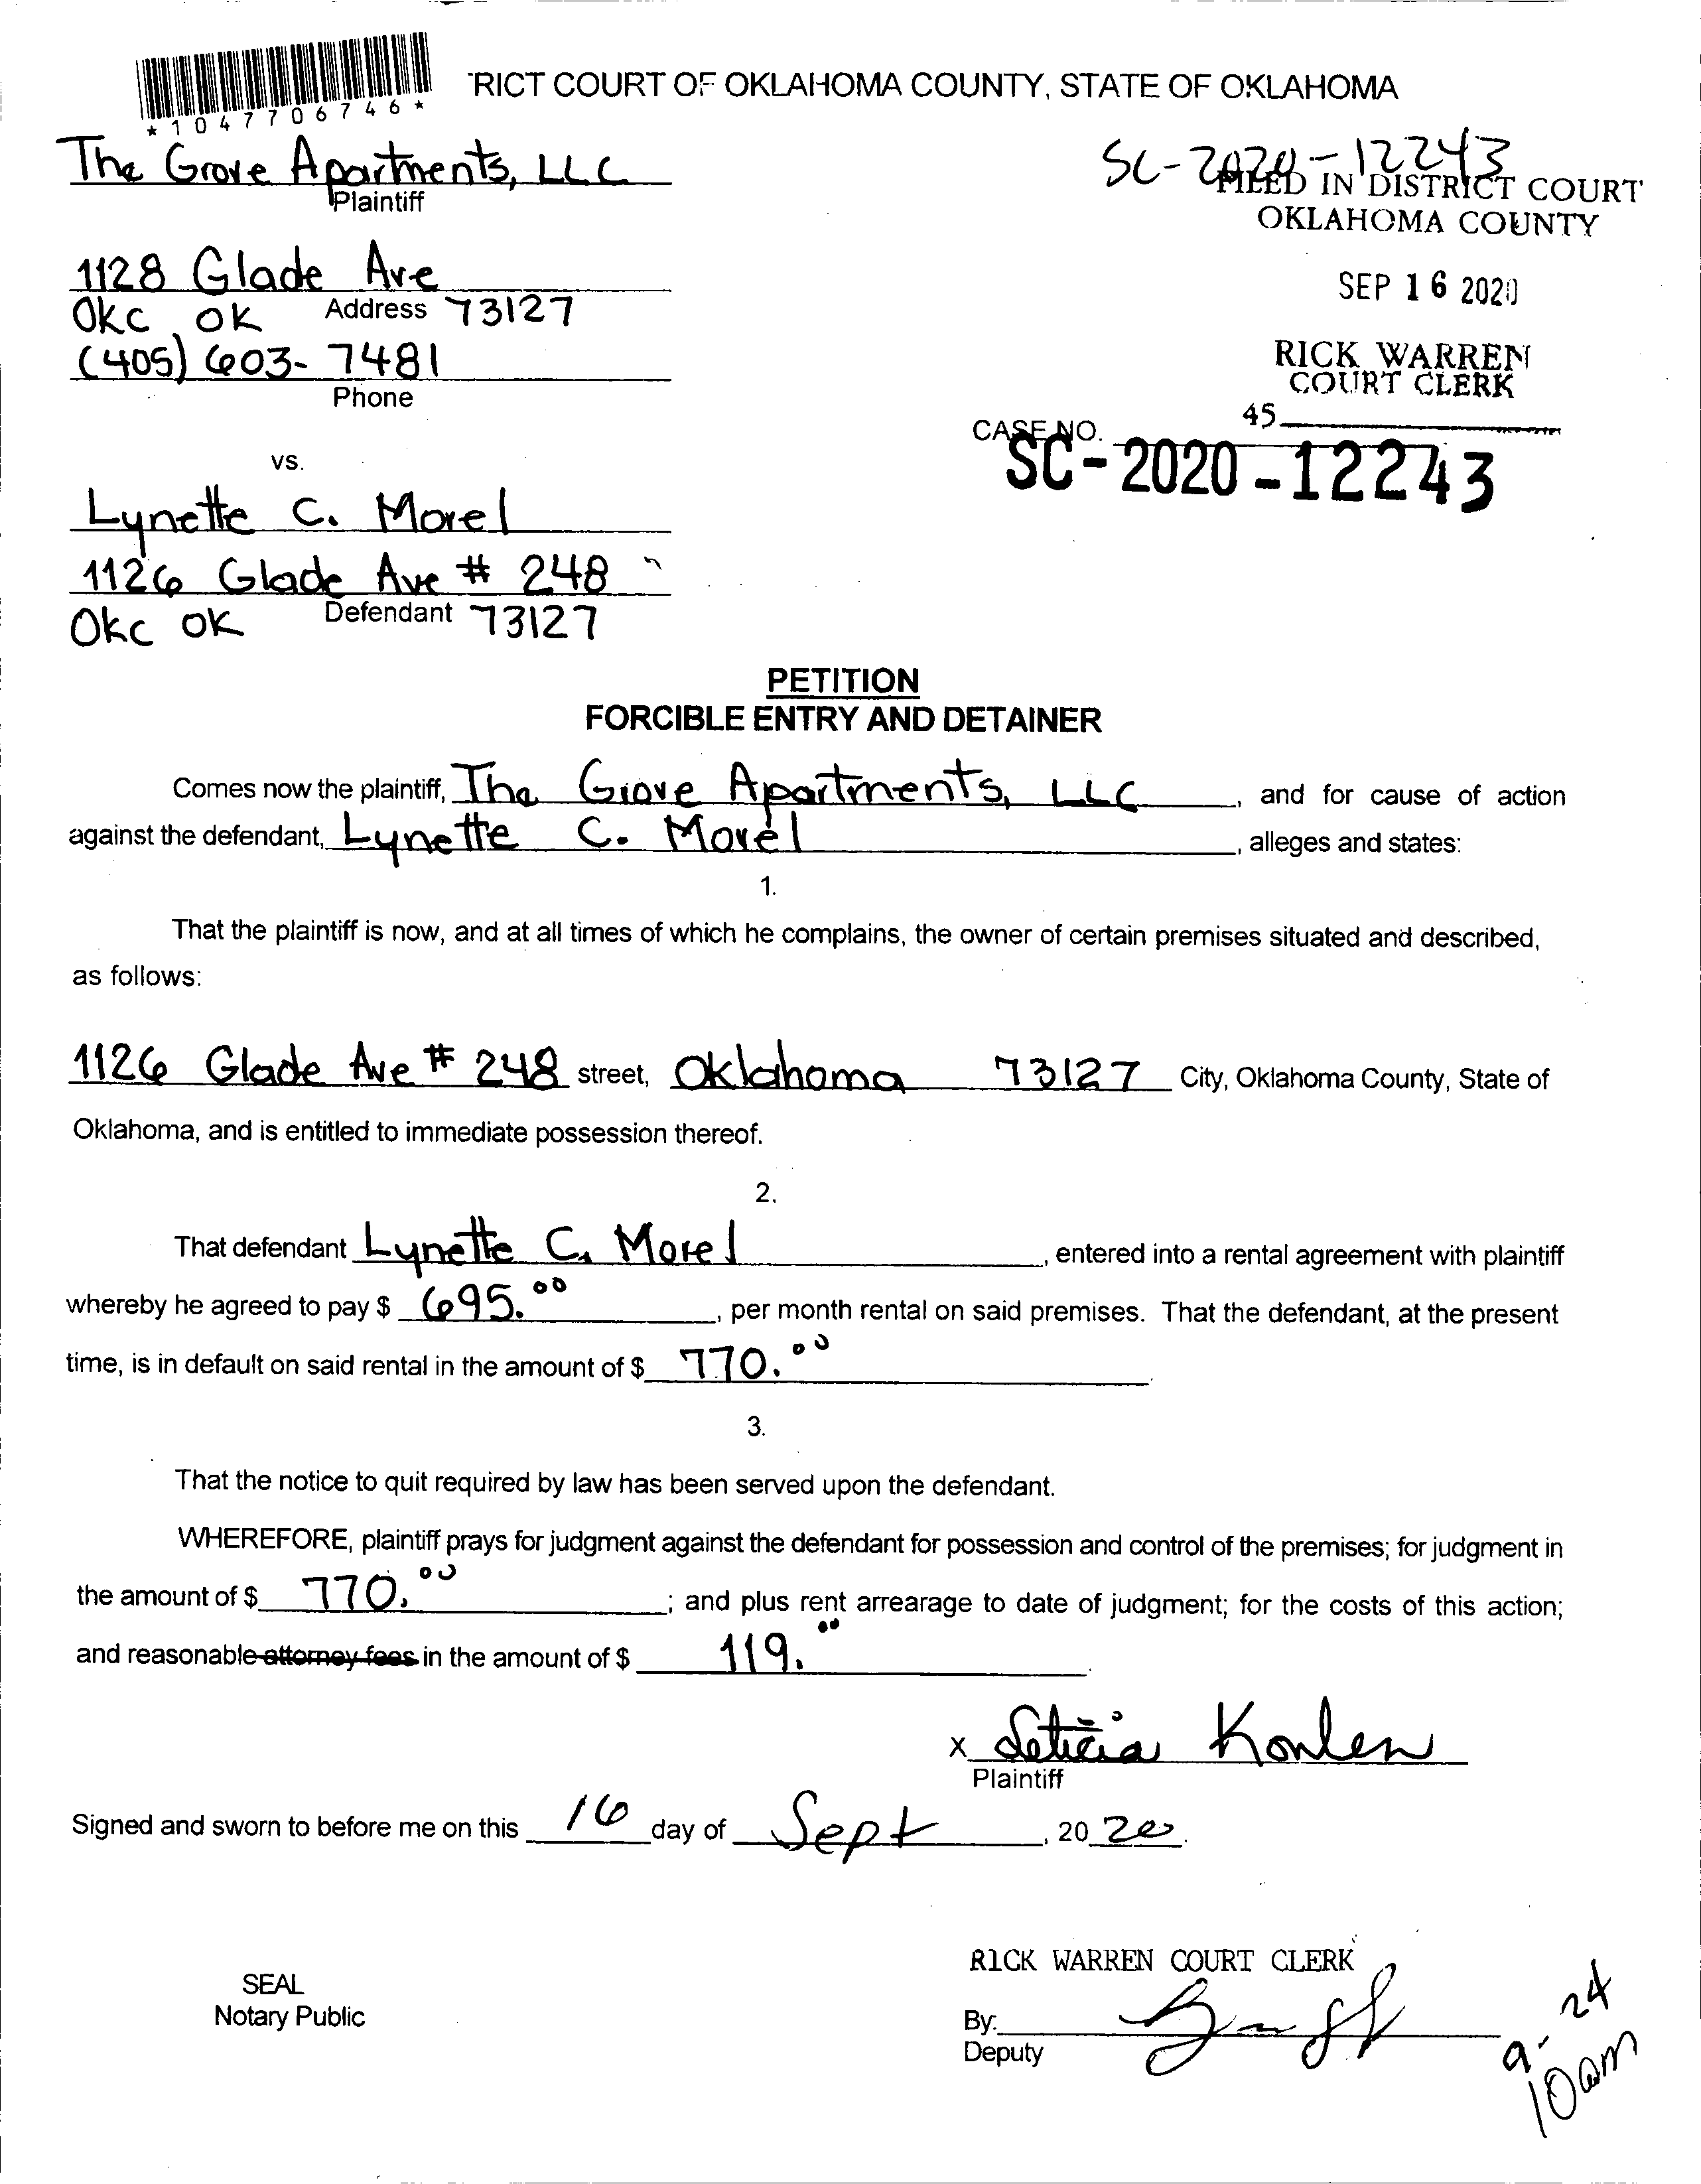 *1047706746*
TRICT COURT OF OKLAHOMA COUNTY, STATE OF OKLAHOMA
The Grove Apartments, LLC
Plaintiff
SC-2020-12243
FILED IN DISTRICT COURT
OKLAHOMA COUNTY
1128 Glade Ave
Address
OKC, OK 73127
SEP 16 2020
(405) 603-7481
Phone
RICK WARREN
COURT CLERK
45
CASE NO.
SC-2020-12243
vs.
Lynette C. Morel
1126 Glade Ave # 248
Defendant
OKC OK 73127
PETITION
FORCIBLE ENTRY AND DETAINER
Comes now the plaintiff, The Grove Apartments, LLC, and for cause of action
against the defendant, Lynette C. Morel, alleges and states:
1.
That the plaintiff is now, and at all times of which he complains, the owner of certain premises situated and described,
as follows:
1126 Glade Ave # 248 street, Oklahoma 73127 City, Oklahoma County, State of
Oklahoma, and is entitled to immediate possession thereof.
2.
That defendant Lynette C. Morel, entered into a rental agreement with plaintiff
whereby he agreed to pay $ 695.00, per month rental on said premises. That the defendant, at the present
time, is in default on said rental in the amount of $ 770.00.
3.
That the notice to quit required by law has been served upon the defendant.
WHEREFORE, plaintiff prays for judgment against the defendant for possession and control of the premises; for judgment in
the amount of $ 770.00; and plus rent arrearage to date of judgment; for the costs of this action;
and reasonable attorney fees in the amount of $ 119.00.
x Leticia Konlen
Plaintiff
Signed and sworn to before me on this 16 day of Sept, 2020.
RICK WARREN COURT CLERK
SEAL
Notary Public
By:
Deputy
9-24
10am